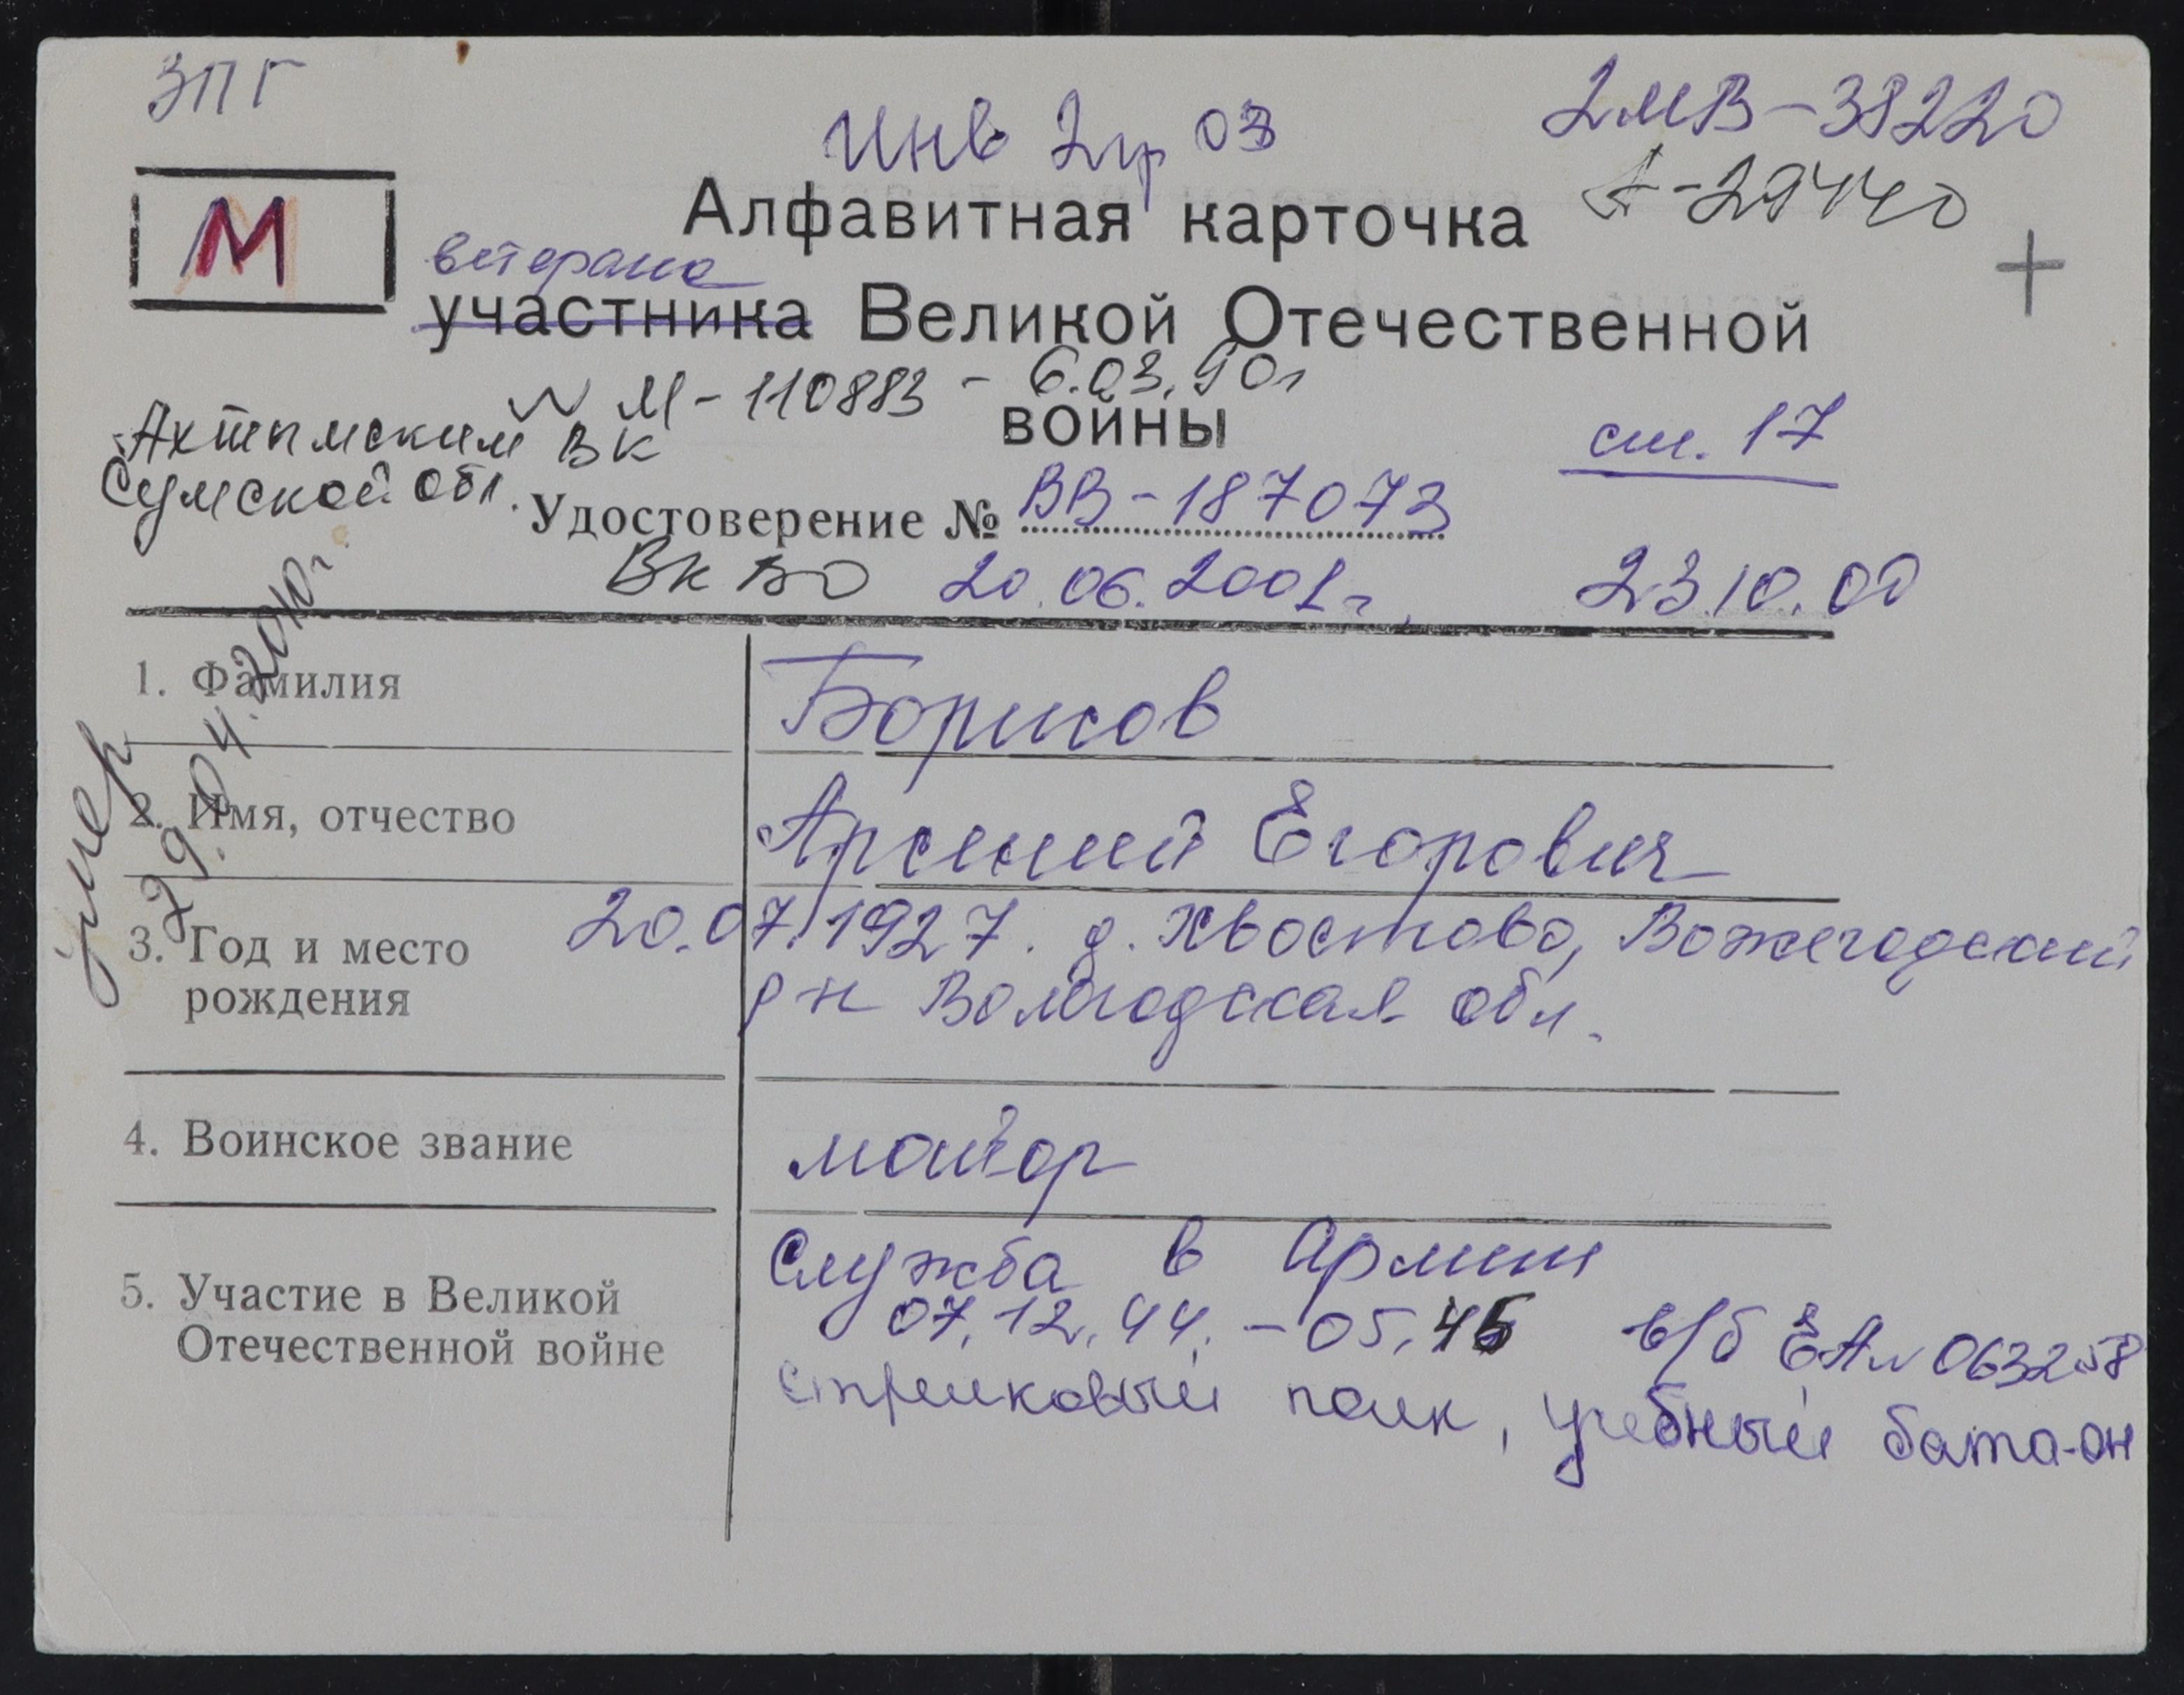 ЗПГ
Инв 2гр 03
2МВ-38220
А-29440
М
Алфавитная карточка
+
ветерана
участника Великой Отечественной
№ М-110883 - 6.03.90г
войны
Ахтымским ВК
ст. 17
Сумской обл.
Удостоверение № ВВ-187073
ВК ВО 20.06.2001г. 23.10.00
умер
29.04.2010г.
1. Фамилия Борисов
2. Имя, отчество Арсений Егорович
3. Год и место 20.07.1927. д. Хвостово, Вожегодский
рождения р-н Вологодская обл.
4. Воинское звание майор
5. Участие в Великой Служба в Армии
Отечественной войне 07.12.44. - 05.45 в/б ЕА № 063258
стрелковый полк, учебный бата-он